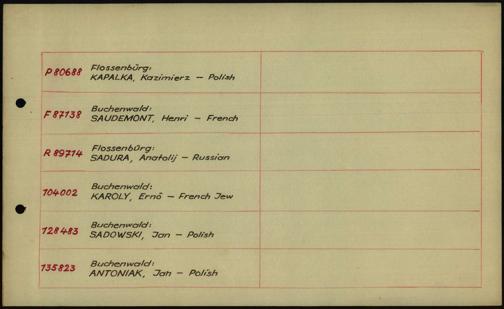 P 80688 Flossenbürg:
KAPALKA, Kazimierz – Polish
F 87138 Buchenwald:
SAUDEMONT, Henri – French
R 89714 Flossenbürg:
SADURA, Anatolij – Russian
104002 Buchenwald:
KAROLY, Ernö – French Jew
128483 Buchenwald:
SADOWSKI, Jan – Polish
135823 Buchenwald:
ANTONIAK, Jan – Polish